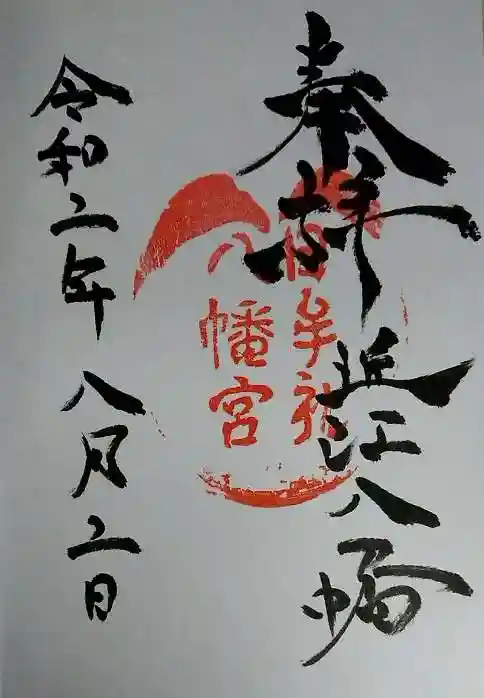 奉拝
近江八幡
日牟禮
八幡宮
令和二年 八月二日